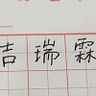 吉瑞霖